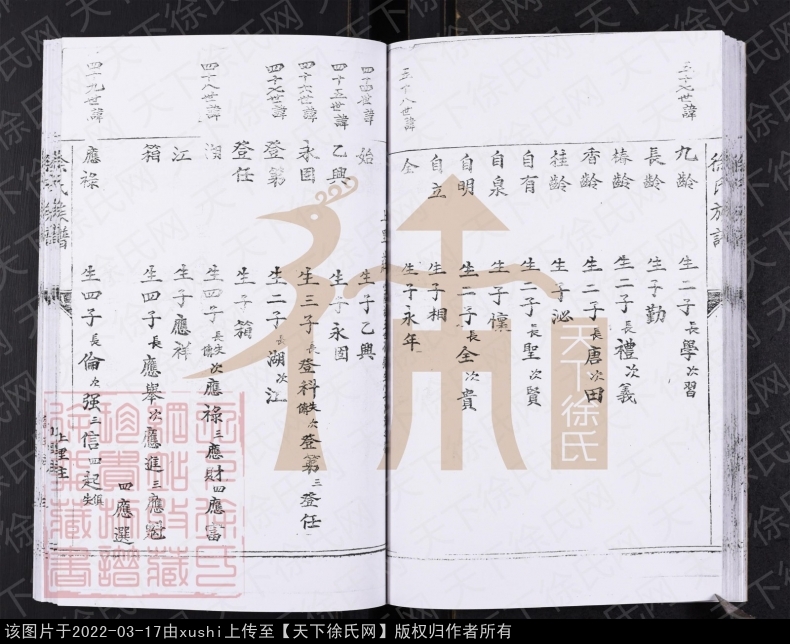 徐氏族譜
三十七世諱
九齡 生二子 長學 次習
長齡 生子勤
椿齡 生二子 長禮 次義
香齡 生二子 長唐 次田
桂齡 生子泌
自有 生二子 長聖 次賢
自泉 生子懷
自明 生二子 長全 次貴
自立 生子相
三十八世諱
全 生子永年
四十四世諱
始 生子乙興
四十五世諱
乙興 生子永囩
四十六世諱
永囩 生三子 長登科 失傳 次登第 三登任
四十七世諱
登第 生二子 長湖 次江
登任 生子箱
四十八世諱
湖 生四子 長 失傳 次應祿 三應財 四應富
江 生子應祥
箱 生四子 長應舉 次應進 三應魁 四應選
四十九世諱
應祿 生四子 長倫 次强 三信 四起 俱失
徐氏族譜
上里
天下徐氏
天下徐氏网
该图片于2022-03-17由xushi上传至【天下徐氏网】版权归作者所有